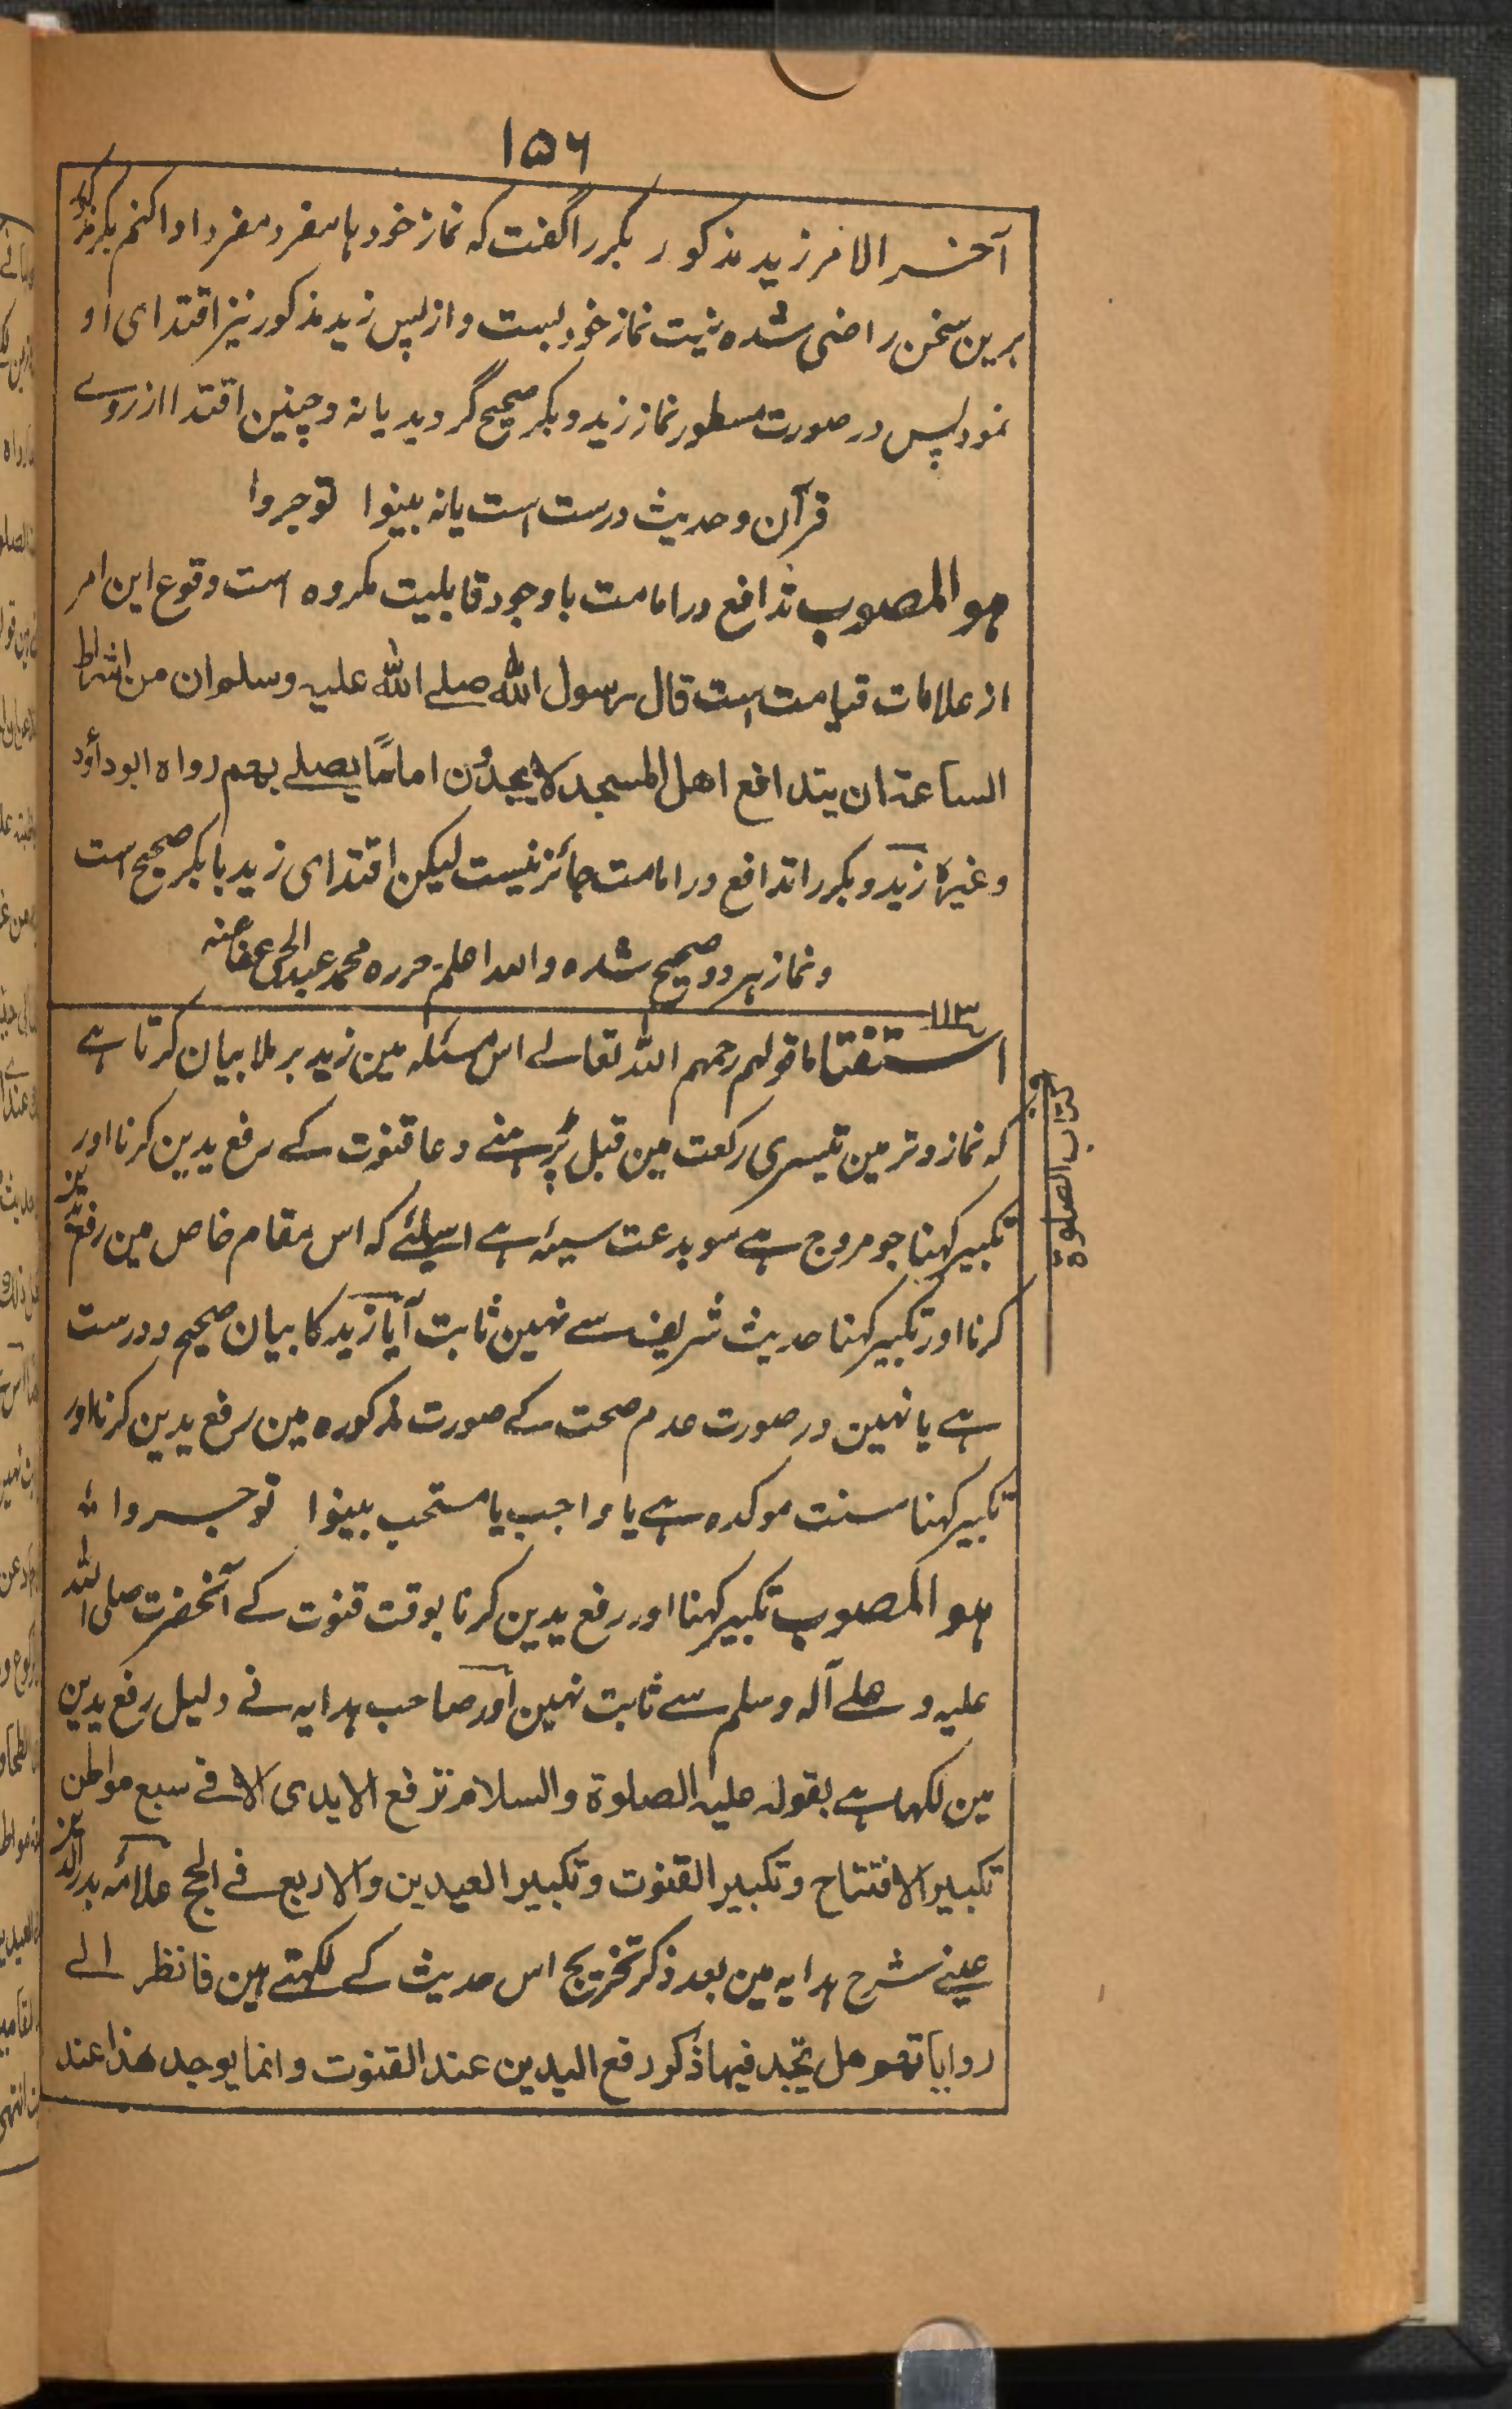 ۱۵۶
آخر الامر زید مذکور بکر را گفت که نماز خود ہا منفرد منفرد ادا کنم بکر مذکور
برین سخن راضی شده نیت نماز خود بست و از پس زید مذکور نیز اقتدای او
نمود پس در صورت مسطور نماز زید و بکر صحیح گردید یا نه و چنین اقتدا از روے
قرآن و حدیث درست است یا نه بینوا توجروا
ہو المصوب تدافع در امامت با وجود قابلیت مکروه است وقوع این امر
از علامات قیامت است قال رسول الله صلے الله علیہ وسلم ان من اشراط
الساعة ان یتدافع اهل المسجد لا یجدون اماماً یصلے بهم رواه ابو داؤد
وغیره زید و بکر را تدافع در امامت جائز نیست لیکن اقتدای زید با بکر صحیح است
و نماز ہر دو صحیح شده والله اعلم حرره محمد عبد الحی عفا عنہ
۱۱۳
استفتا ما قولہم رحمہم اللہ تعالے اس مسئلہ مین زید برملا بیان کرتا ہے
کہ نماز وتر مین تیسری رکعت مین قبل پڑہنے دعا قنوت کے رفع یدین کرنا اور
تکبیر کہنا جو مروج ہے سو بدعت سیئہ ہے اسلئے کہ اس مقام خاص مین رفع یدین
کرنا اور تکبیر کہنا حدیث شریف سے نہین ثابت آیا زید کا بیان صحیح و درست
ہے یا نہین در صورت عدم صحت کے صورت مذکورہ مین رفع یدین کرنا اور
تکبیر کہنا سنت موکدہ ہے یا واجب یا مستحب بینوا توجروا
ہو المصوب تکبیر کہنا اور رفع یدین کرنا بوقت قنوت کے آنحضرت صلی اللہ
علیہ و علے آلہ وسلم سے ثابت نہین اور صاحب ہدایہ نے دلیل رفع یدین
مین لکہا ہے بقولہ علیہ الصلوة والسلام ترفع الایدی الا فی سبع مواطن
تکبیر الافتتاح وتکبیر القنوت وتکبیر العیدین والاربع فی الحج علامہ بدر الدین
عینے شرح ہدایہ مین بعد ذکر تخریج اس حدیث کے لکہتے ہین فانظر الے
روایاتهم هل تجد فیها ذکر رفع الیدین عند القنوت وانما یوجد هذا عند
کتاب الصلوة